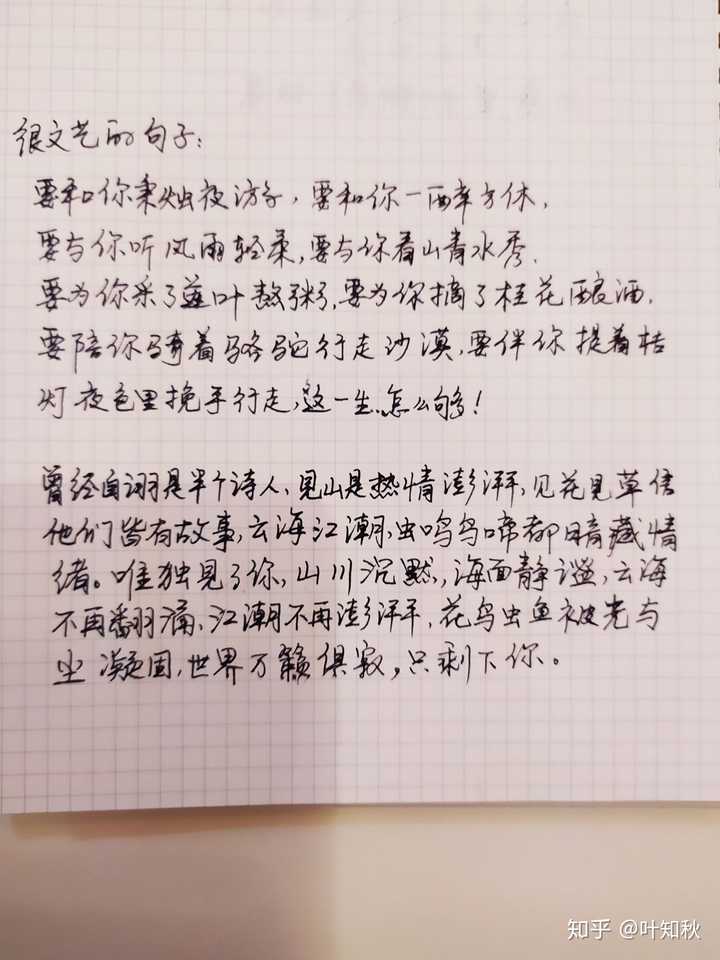 很文艺的句子：
要和你秉烛夜游子，要和你一醉方休，
要与你听风雨轻柔，要与你看山青水秀，
要为你采了莲叶熬粥，要为你摘了桂花酿酒，
要陪你骑着骆驼行走沙漠，要伴你提着桔
灯夜色里挽手行走，这一生怎么够！
曾经自诩是半个诗人，见山是热情澎湃，见花见草信
他们皆有故事，云海江潮、虫鸣鸟啼都暗藏情
绪。唯独见了你，山川沉默，海面静谧，云海
不再翻涌，江潮不再澎湃，花鸟虫鱼被光与
尘凝固，世界万籁俱寂，只剩下你。
知乎 @叶知秋